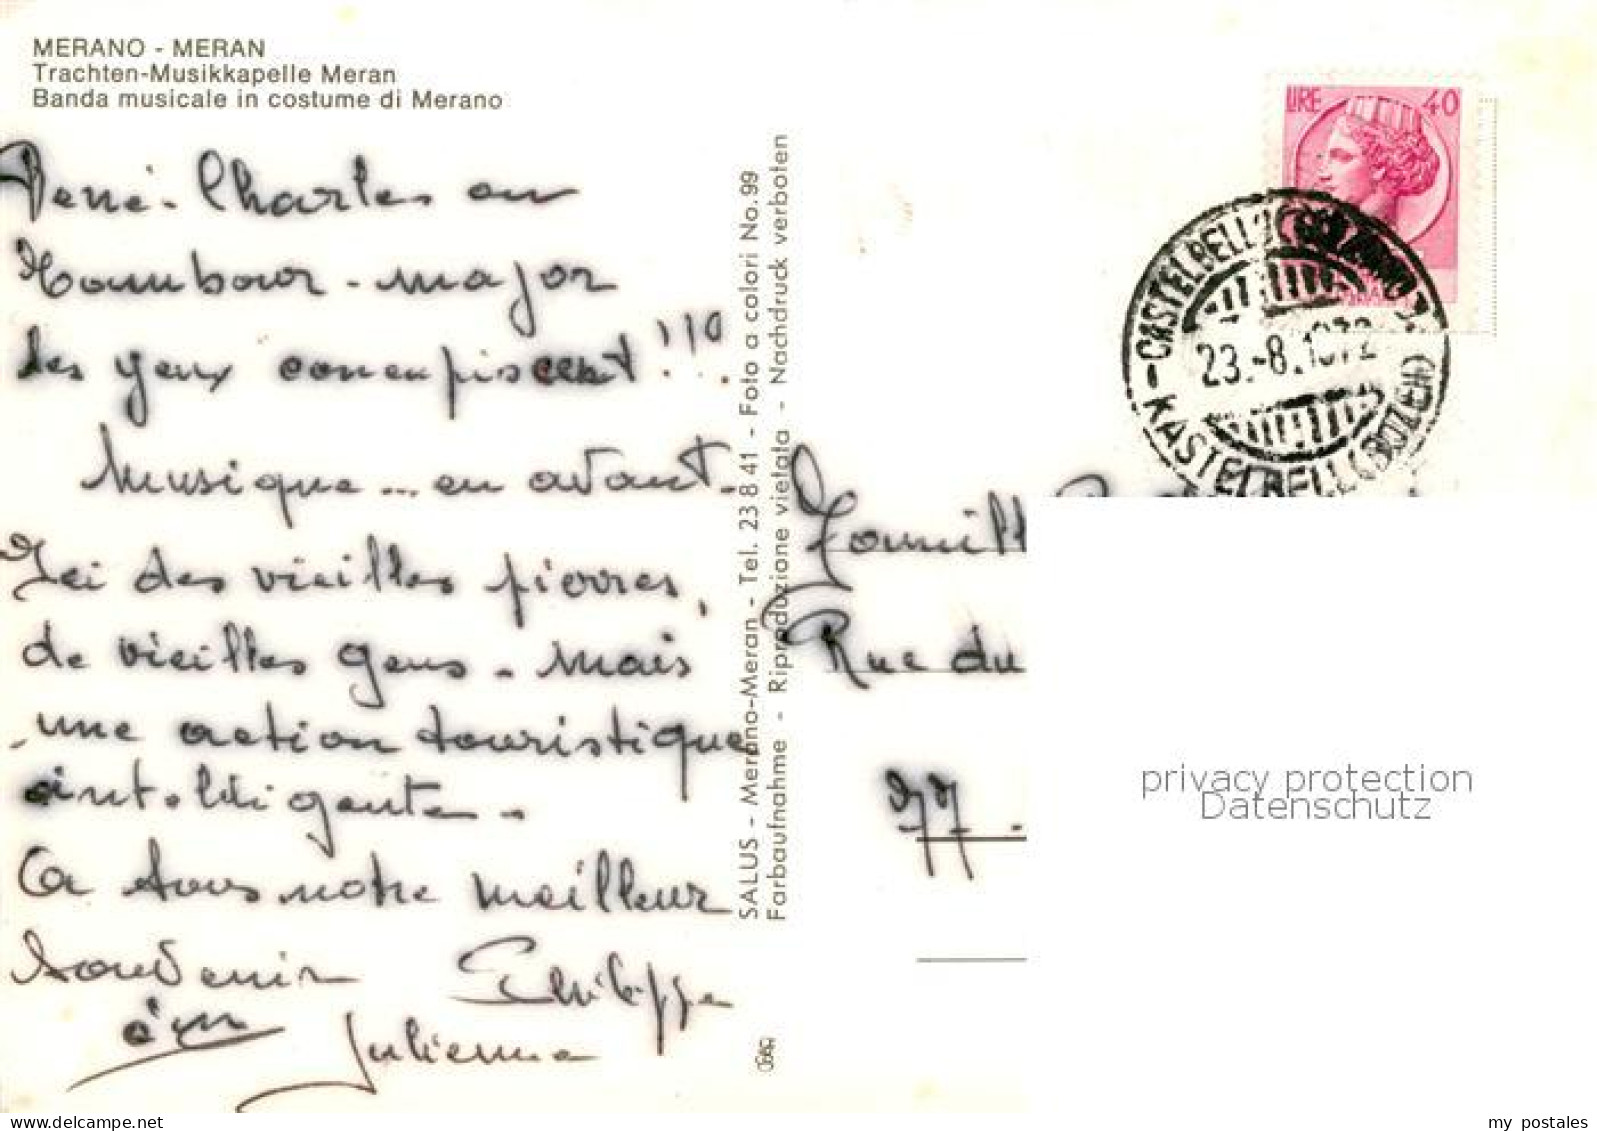 MERANO - MERAN
Trachten-Musikkapelle Meran
Banda musicale in costume di Merano
René-Charles en
Tambour-major
les yeux concupiscent !!!
Musique... en avant.
Ici des vieilles pierres,
de vieilles gens. Mais
une action touristique
intelligente.
A tous notre meilleur
souvenir Philippe
Julienne
SALUS - Merano-Meran - Tel. 23 8 41 - Foto a colori No. 99
Farbaufnahme - Riproduzione vietata - Nachdruck verboten
LIRE 40
CASTELBELLO
23.-8.1972
KASTELBELL (BOZEN)
Famill
Rue du
77
privacy protection
Datenschutz
www.delcampe.net
my_postales